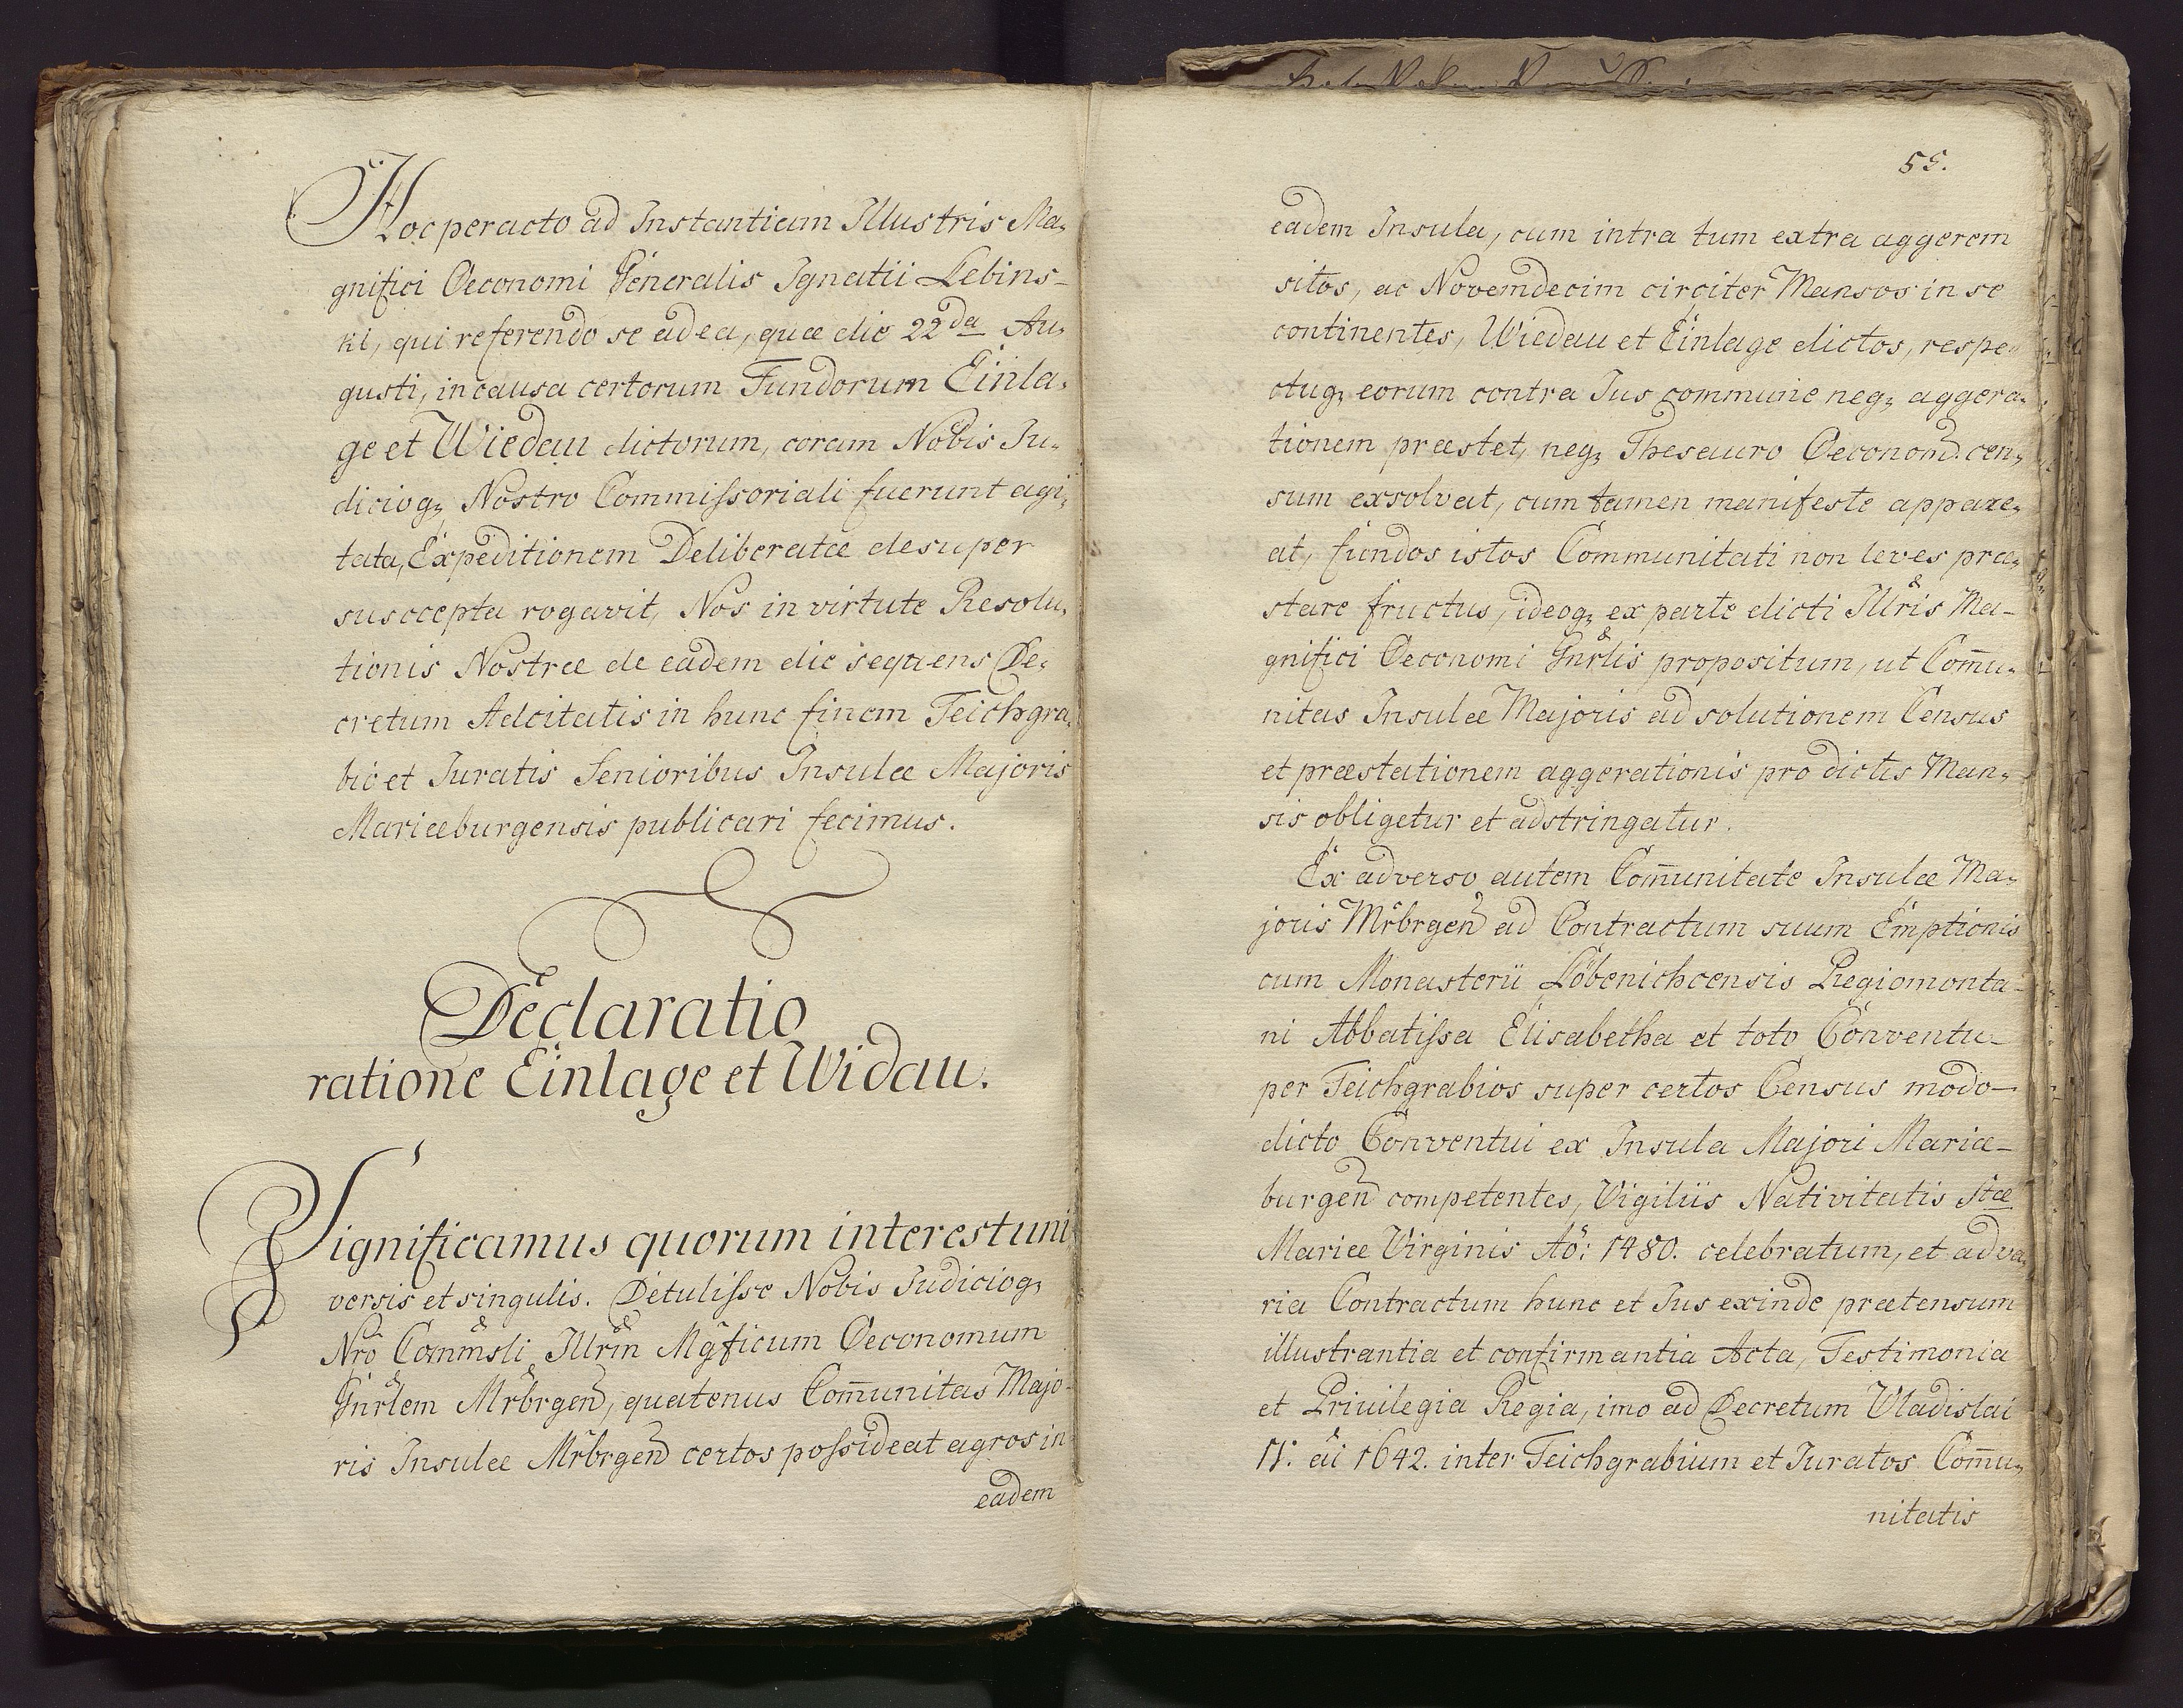 Hoc peracto ad Instantiam Illustris Ma,
gnifici Oeconomi Generalis Ignatii Lebins-
ki, qui referendo se ad ea, quæ die 22da Au,
gusti, in causa certorum Fundorum Einla,
ge et Wiedau dictorum, coram Nobis Ju-
dicioqꝫ Nostro Commißoriali fuerunt agi,
tata, Expeditionem Deliberatæ desuper
susccepta rogavit, Nos in virtute Resolu,
tionis Nostræ de eadem die sequens De,
cretum Adcitatis in hunc finem Teichgra,
bio et Juratis Senioribus Insulæ Majoris
Mariæburgensis publicari fecimus.
Declaratio
ratione Einlage et Widau.
Significamus quorum interest uni
versis et singulis. Detulisse Nobis Judicioqꝫ
Nro Commsli Illrm Mgficum Oeconomum
Gnrlem Mrbrgen, quatenus Com̄unitas Majo-
ris Insulæ Mrbrgen certos poßideat agros in
eadem
55.
eadem Insula, cum intra tum extra aggerem
sitos, ac Novemdecim circiter Mansos in se
continentes, Wiedau et Einlage dictos, respe
ctuqꝫ eorum contra Jus commune neqꝫ aggera,
tionem præstet, neqꝫ Thesauro Oeconom. cen,
sum exsolvat, cum tamen manifeste appare,
at, fundos istos Communitati non leves præ,
stare fructus, ideoqꝫ ex parte dicti Illris Ma-
gnifici Oeconomi Gnrlis propositum, ut Com̄u,
nitas Insulæ Majoris ad solutionem Census
et præstationem aggerationis pro dictis Man,
sis obligetur et adstringatur.
Ex adverso autem Com̄unitate Insulæ Ma,
joris Mrbrgen ad Contractum suum Emptionis
cum Monasterii Löbenichcensis Regiomonta-
ni Abbatißa Elisabetha et toto Conventu
per Teichgrabios super certos Census modo
dicto Conventui ex Insula Majori Mariæ-
burgen competentes, Vigiliis Nativitatis Stæ
Mariæ Virginis Ao: 1480. celebratum, et ad va,
ria Contractum hunc et Jus exinde prætensum
illustrantia et confirmantia Acta, Testimonia
et Privilegia Regia, imo ad Decretum Vladislai
IV. ai 1642. inter Teichgrabium et Juratos Com̄u,
nitatis